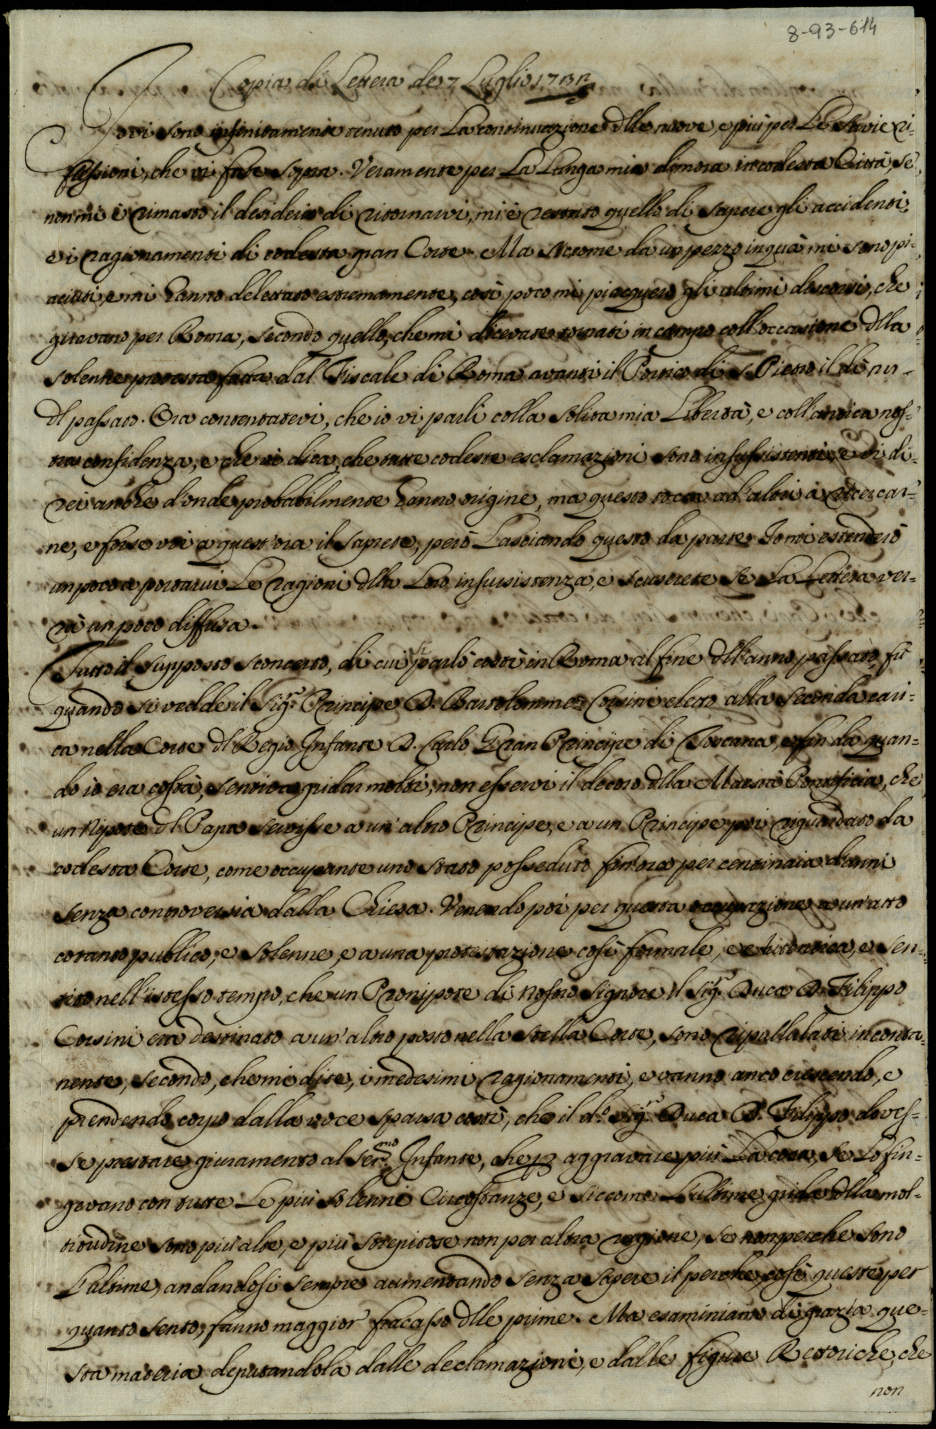 8-93-614
Copia di Lettera de 7 Luglio 1732
Io vi sono infinitamente tenuto per la continuazione dlle nuove, e più per le savie ri-
flessioni, che vi fate sopra. Veramente per la lunga mia dimora in codesta Città, se
non mi è rimasto il desiderio di ritornarvi, mi è restato quello di sapere gli accidenti,
e i ragionamenti di codesta gran Corte. Ma siccome da un pezzo in quà mi sono pi-
aciuti, e mi hanno dilettato estremamente, così poco mi piacquero gli ultimi discorsi, che
giravano per Roma, secondo quello, che mi dicevate tornati in campo coll'occasione dlla
solenne protesta fatta dal Fiscale di Roma avanti il Portico di S. Pietro il dì
dl passato. Ora contentatevi, che io vi parli colla solita mia libertà, e coll'antica nos-
tra confidenza, e che vi dica, che tutte codeste esclamazioni sono insussistenti, e vi di-
rei anche d'onde probabilmente hanno origine, ma questo tocca ad altri a ricercar-
ne, e forse voi a quest'ora il sapete, però lasciando questo da parte Io mi estenderò
un poco a portarvi le ragioni dlla loro insussistenza, e scuserete se la lettera ver-
rà un poco diffusa.
Tutto il supposto sconcerto, di cui si parlò costì in Roma al fine dll'anno passato, fù
quando si vedde il Sigr. Principe D. Bartolommeo Corsini eletto alla seconda cari-
ca nella Corte dl Regio Infante D. Carlo Gran Principe di Toscana, e fin da quan-
do io era costà, sentivo gridar molti, non esservi il decoro dlla Maestà Pontificia, che
un Nipote dl Papa servisse a un altro Principe, e a un Principe poi riguardato da
codesta Corte, come occupante uno stato posseduto finora per centinaia d'anni
senza controversia dalla Chiesa. Venendo poi per questa occupazione a un atto
cotanto publico, e solenne, e a una protestazione così formale, e e sen-
tito nell'istesso tempo, che un Pronipote di Nostro Signore il Sigr. Duca D. Filippo
Corsini era destinato a un'altro posto nella stessa Corte, sono ripullulati inconta-
nente, secondo, che mi dite, i medesimi ragionamenti, e vanno anco crescendo, e
prendendo corpo dalla voce sparsa costì, che il do. Sigr. Duca D. Filippo doves-
se prestare giuramento al Sermo. Infante, che p aggravare più la cosa, se lo fin-
gevano con tutte le più solenni circostanze, e siccome l'ultime grida dlla mol-
titudine sono più alte, e più strepitose non per altra ragione, se non perche sono
l'ultime, andandosi sempre aumentando senza sapere il perche, così queste per
quanto sento, fanno maggior fracasso dlle prime. Ma esaminiamo di grazia que-
sta materia depurandola dalle declamazioni, e dalle figure Rettoriche, che
non